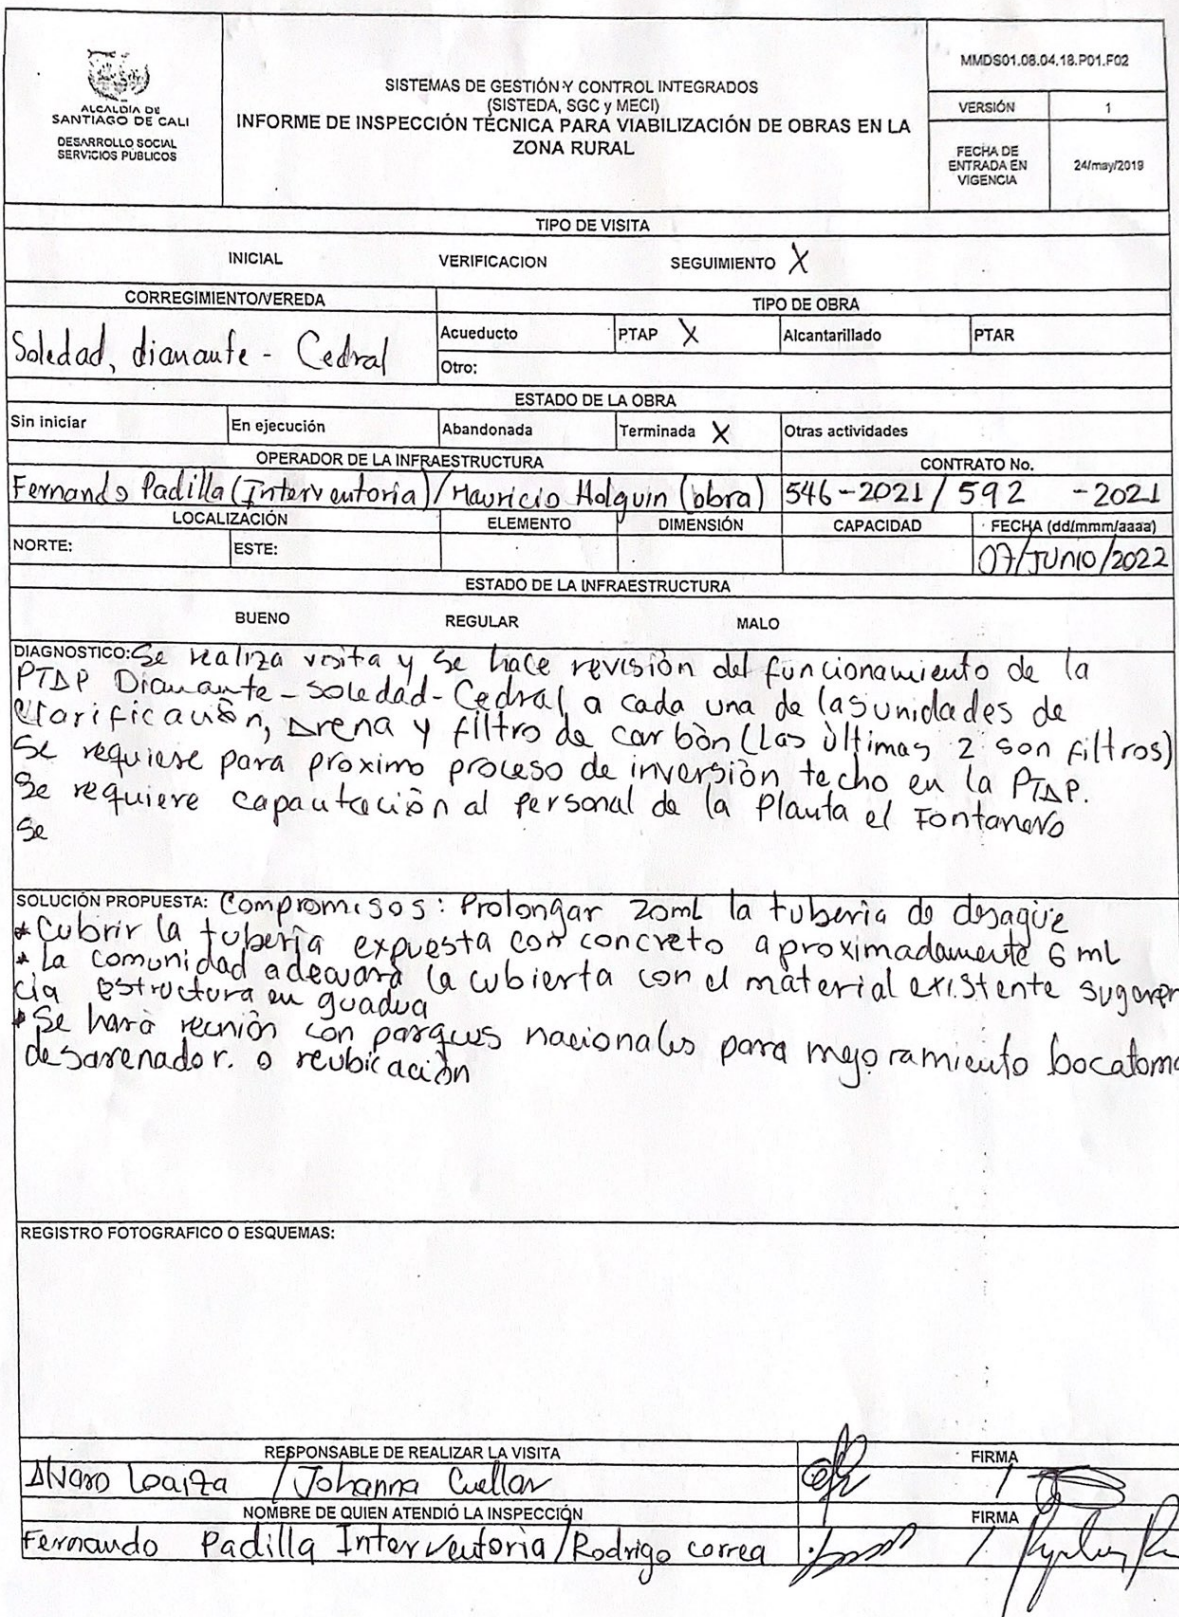 ALCALDÍA DE
SANTIAGO DE CALI
DESARROLLO SOCIAL
SERVICIOS PÚBLICOS
SISTEMAS DE GESTIÓN Y CONTROL INTEGRADOS
(SISTEDA, SGC y MECI)
INFORME DE INSPECCIÓN TÉCNICA PARA VIABILIZACIÓN DE OBRAS EN LA
ZONA RURAL
MMDS01.08.04.18.P01.F02
VERSIÓN 1
FECHA DE
ENTRADA EN
VIGENCIA
24/may/2019
TIPO DE VISITA
INICIAL VERIFICACION SEGUIMIENTO X
CORREGIMIENTO/VEREDA TIPO DE OBRA
Soledad, diamante - Cedral
Acueducto PTAP X Alcantarillado PTAR
Otro:
ESTADO DE LA OBRA
Sin iniciar En ejecución Abandonada Terminada X Otras actividades
OPERADOR DE LA INFRAESTRUCTURA CONTRATO No.
Fernando Padilla (Interventoria) / Mauricio Holguin (obra) 546-2021 / 592 -2021
LOCALIZACIÓN ELEMENTO DIMENSIÓN CAPACIDAD FECHA (dd/mmm/aaaa)
NORTE: ESTE: 07/JUNIO/2022
ESTADO DE LA INFRAESTRUCTURA
BUENO REGULAR MALO
DIAGNOSTICO: Se realiza visita y se hace revisión del funcionamiento de la
PTAP Diamante - Soledad - Cedral a cada una de las unidades de
Clarificación, Arena y filtro de carbòn (Las ùltimas 2 son filtros)
Se requiere para proximo proceso de inversiòn techo en la PTAP.
Se requiere capacitaciòn al personal de la Planta el Fontanero
Se
SOLUCIÓN PROPUESTA: Compromisos: Prolongar 20ml la tuberia de desagüe
* Cubrir la tuberìa expuesta con concreto aproximadamente 6 ml
* La comunidad adecuarà la cubierta con el material existente sugeren
cia estructura en guadua
* Se harà reunion con parques nacionales para mejoramiento bocatoma
desarenador. o reubicaciòn
REGISTRO FOTOGRAFICO O ESQUEMAS:
RESPONSABLE DE REALIZAR LA VISITA FIRMA
Alvaro Loaiza / Johanna Cuellar
NOMBRE DE QUIEN ATENDIÓ LA INSPECCIÓN FIRMA
Fernando Padilla Interventoria / Rodrigo Correa